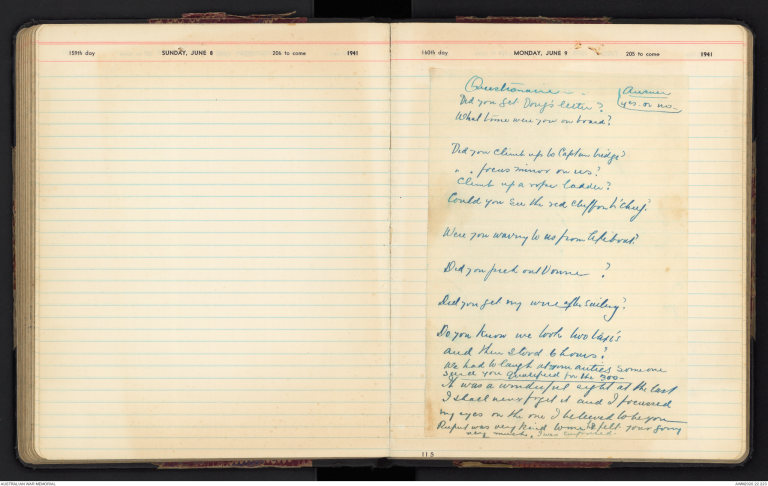 159th day SUNDAY, JUNE 8 206 to come 1941
160th day MONDAY, JUNE 9 205 to come 1941
Questionnaire. Answer
Did you get Doug's letter? yes or no-
What time were you on board?
Did you climb up to Captain bridge?
" " focus mirror on us?
Climb up a rope ladder?
Could you see the red chiffon h'chief?
Were you waving to us from lifeboat?
Did you pick out ?
Did you get my wire after sailing?
Do you know we took two taxi's
and then stood 6 hours?
We had to laugh at your antics someone
said you qualified for the zoo-
It was a wonderful sight at the last
I shall never forget it and I focussed
my eyes on the one I believed to be you
Rupert was very kind to me I felt your going
very much, I was
115
AUSTRALIAN WAR MEMORIAL